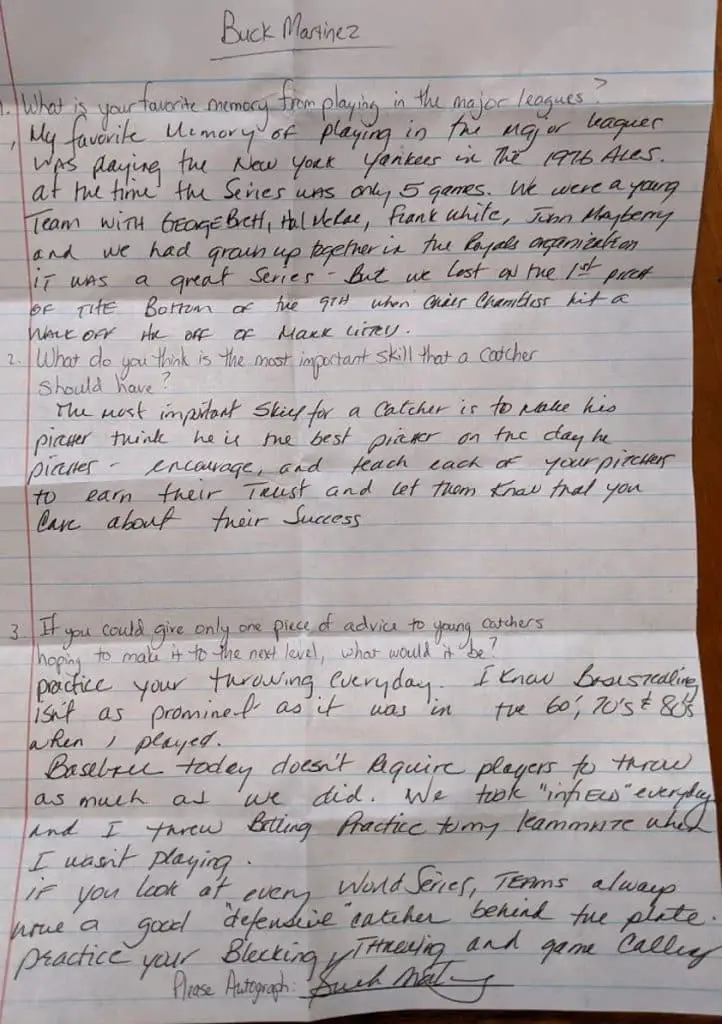 Buck Martinez
1. What is your favorite memory from playing in the major leagues?
, My favorite memory of playing in the major leagues
was playing the New York Yankees in the 1976 ALCS.
at the time the Series was only 5 games. We were a young
Team with George Brett, Hal McRae, Frank White, John Mayberry
and we had grown up together in the Royals organization
it was a great Series - But we lost on the 1st pitch
of the Bottom of the 9th when Chris Chambliss hit a
walk off HR off of Mark Littell.
2. What do you think is the most important skill that a catcher
should have?
The most important skill for a catcher is to make his
pitcher think he is the best pitcher on the day he
pitches - encourage, and teach each of your pitchers
to earn their Trust and let them know that you
Care about their Success
3. If you could give only one piece of advice to young catchers
hoping to make it to the next level, what would it be?
practice your throwing everyday. I know Basestealing
isn't as prominent as it was in the 60's, 70's & 80's
when I played.
Baseball today doesn't require players to throw
as much as we did. We took "infield" everyday
and I threw Batting Practice to my teammate when
I wasn't playing.
if you look at every World Series, TEAMS always
have a good "defensive" catcher behind the plate.
practice your Blocking, Throwing and game Calling
Please Autograph: Buck Martinez